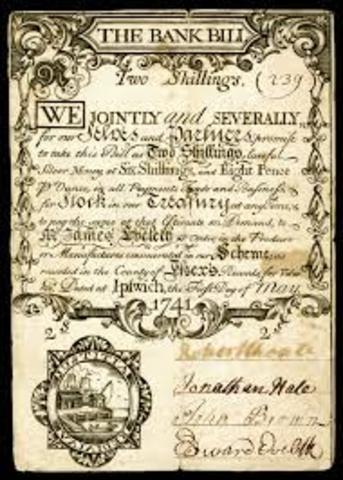 THE BANK BILL
Two Shillings. (239
WE JOINTLY and SEVERALLY
for our Selves and Partners promise
to take this Bill as Two Shillings, lawful
Silver Money at Six Shillings, and Eight Pence
℔ Ounce, in all Payments, Trade and Business
for Stock in our Treasury at any Time,
to pay the same at that Estimate on Demand, to
Mr James Eveleth or Order in the Produce
or Manufactures enumerated in our Scheme; as
recorded in the County of Essex's Records, for Value
Dated at Ipswich, the First Day of May
1741
2 s 2 s
Jonathan Hale
John Brown
Edward Eveleth